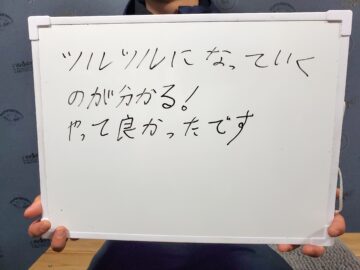 ツルツルになっていく
のが分かる！
やって良かったです